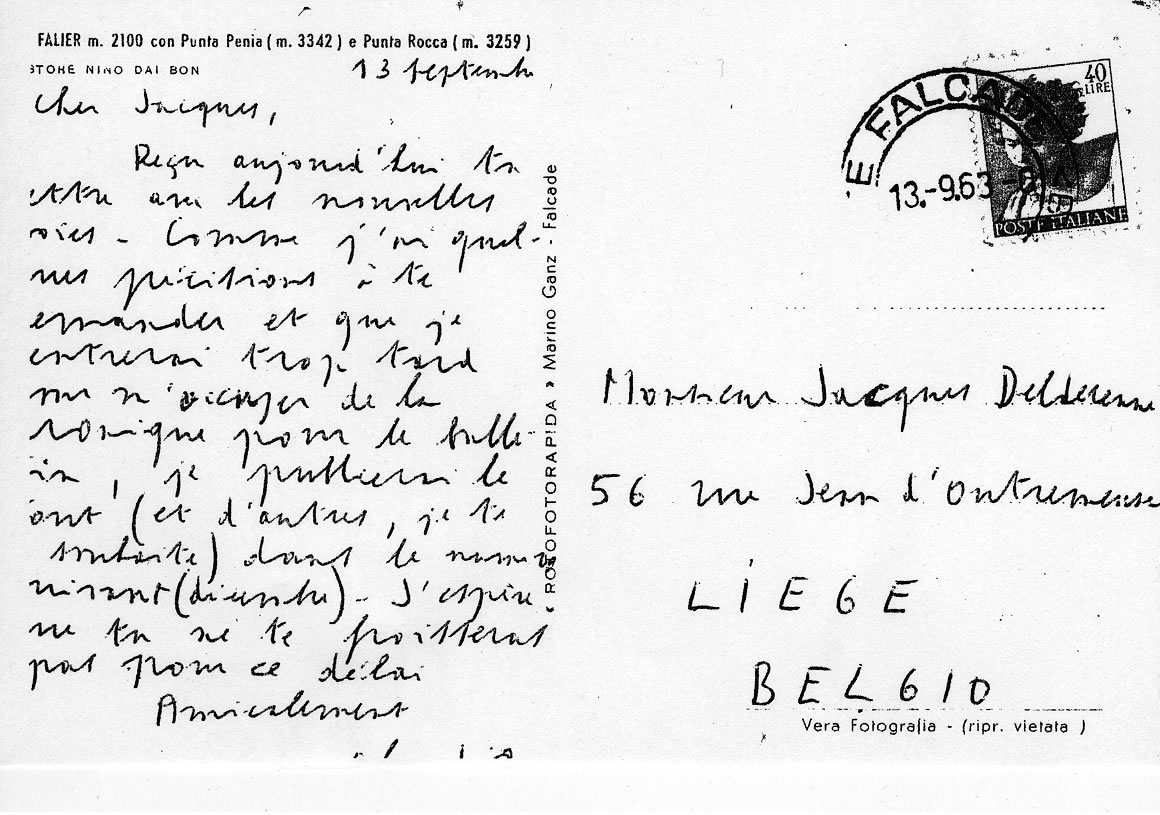 FALIER m. 2100 con Punta Penia ( m. 3342 ) e Punta Rocca ( m. 3259 )
STORE NINO DAI BON
13 septembre
Cher Jacques,
Reçu aujourd'hui ta
ettre avec les nouvelles
oies - Comme j'ai quel-
ues précisions à te
emander et que je
entrerai trop tard
our m'occuper de la
ronique pour le bulle-
in, je publierai le
ont (et d'autres, je te
souhaite) dans le numéro
uivant (décembre) - J'espère
ue tu ne te froisseras
pas pour ce délai
Amicalement
« ROTOFOTORAPIDA » Marino Ganz - Falcade
E FALCADE
13.-9.63 -8
40
LIRE
POSTE ITALIANE
Monsieur Jacques
56 rue Jean d'Outremeuse
LIEGE
BELGIO
Vera Fotografia - (ripr. vietata )